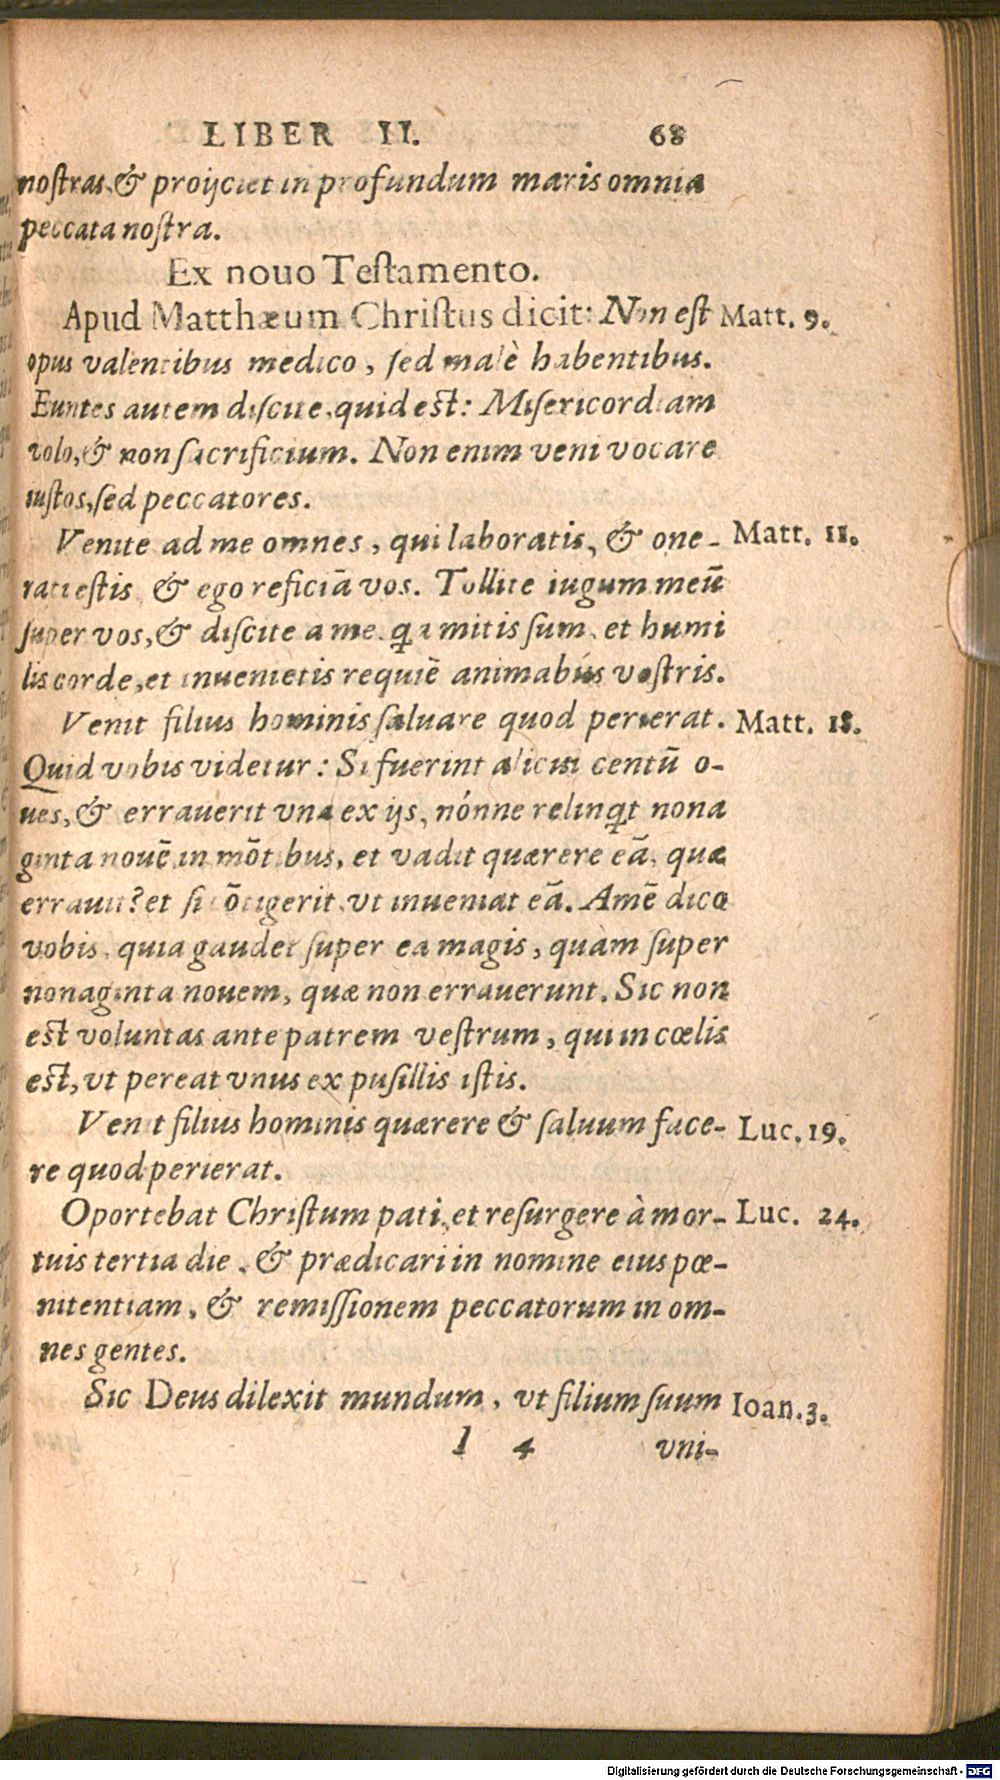 LIBER II. 68
nostras, & proijciet in profundum maris omnia
peccata nostra.
Ex nouo Testamento.
Apud Matthæum Christus dicit: Non est Matt. 9.
opus valentibus medico, sed malè habentibus.
Euntes autem discite, quid est: Misericordiam
volo, & non sacrificium. Non enim veni vocare
iustos, sed peccatores.
Venite ad me omnes, qui laboratis, & one- Matt. 11.
rati estis, & ego reficiā vos. Tollite iugum meū
super vos, & discite a me, qa mitis sum, et humi
lis corde, et inuenietis requiē animabús vestris.
Venit filius hominis saluare quod perierat. Matt. 18.
Quid vobis videtur: Si fuerint alicui centū o-
ues, & errauerit vna ex ijs, nónne relinqt nona
ginta nouē in mōtibus, et vadit quærere eā, quæ
errauit? et si cōtigerit, vt inueniat eā. Amē dico
vobis, quia gaudet super ea magis, quàm super
nonaginta nouem, quæ non errauerunt. Sic non
est voluntas ante patrem vestrum, qui in cœlis
est, vt pereat vnus ex pusillis istis.
Venit filius hominis quærere & saluum face- Luc. 19.
re quod perierat.
Oportebat Christum pati, et resurgere à mor- Luc. 24.
tuis tertia die, & prædicari in nomine eius pœ-
nitentiam, & remissionem peccatorum in om-
nes gentes.
Sic Deus dilexit mundum, vt filium suum Ioan. 3.
I 4 vni-
Digitalisierung gefördert durch die Deutsche Forschungsgemeinschaft - DFG